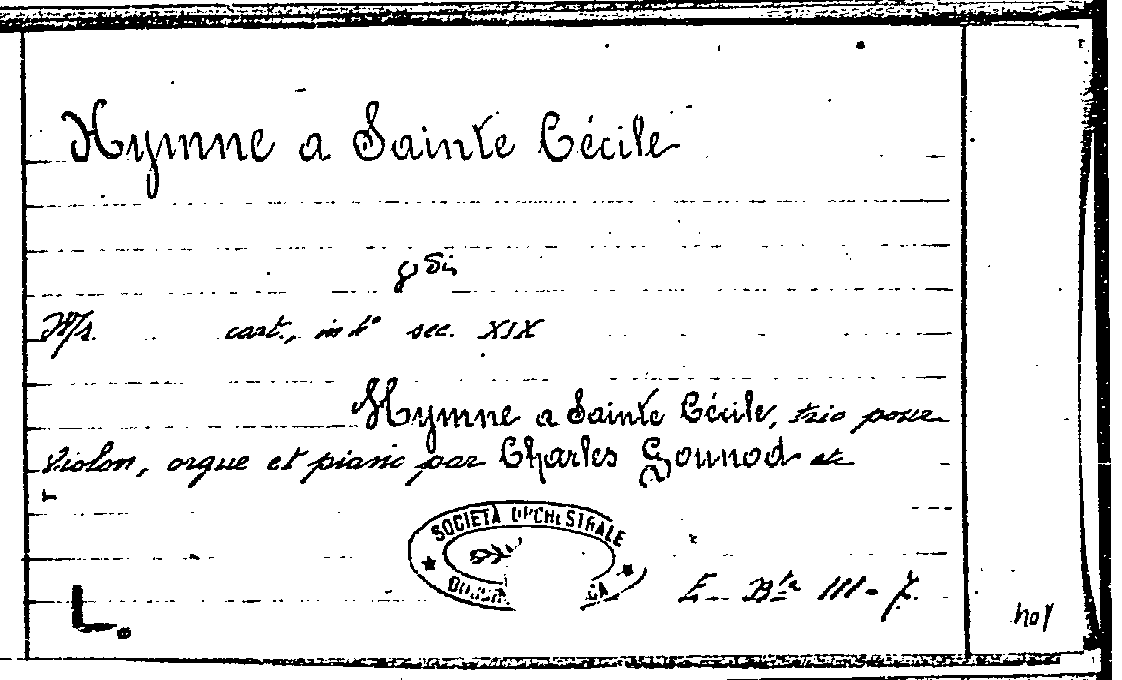 Hymne a Sainte Cécile
Ms. cart., in 4° sec. XIX
Hymne a Sainte Cécile, trio pour
violon, orgue et piano par Charles Gounod etc
SOCIETÀ ORCHESTRALE
E. B.ta III-7.